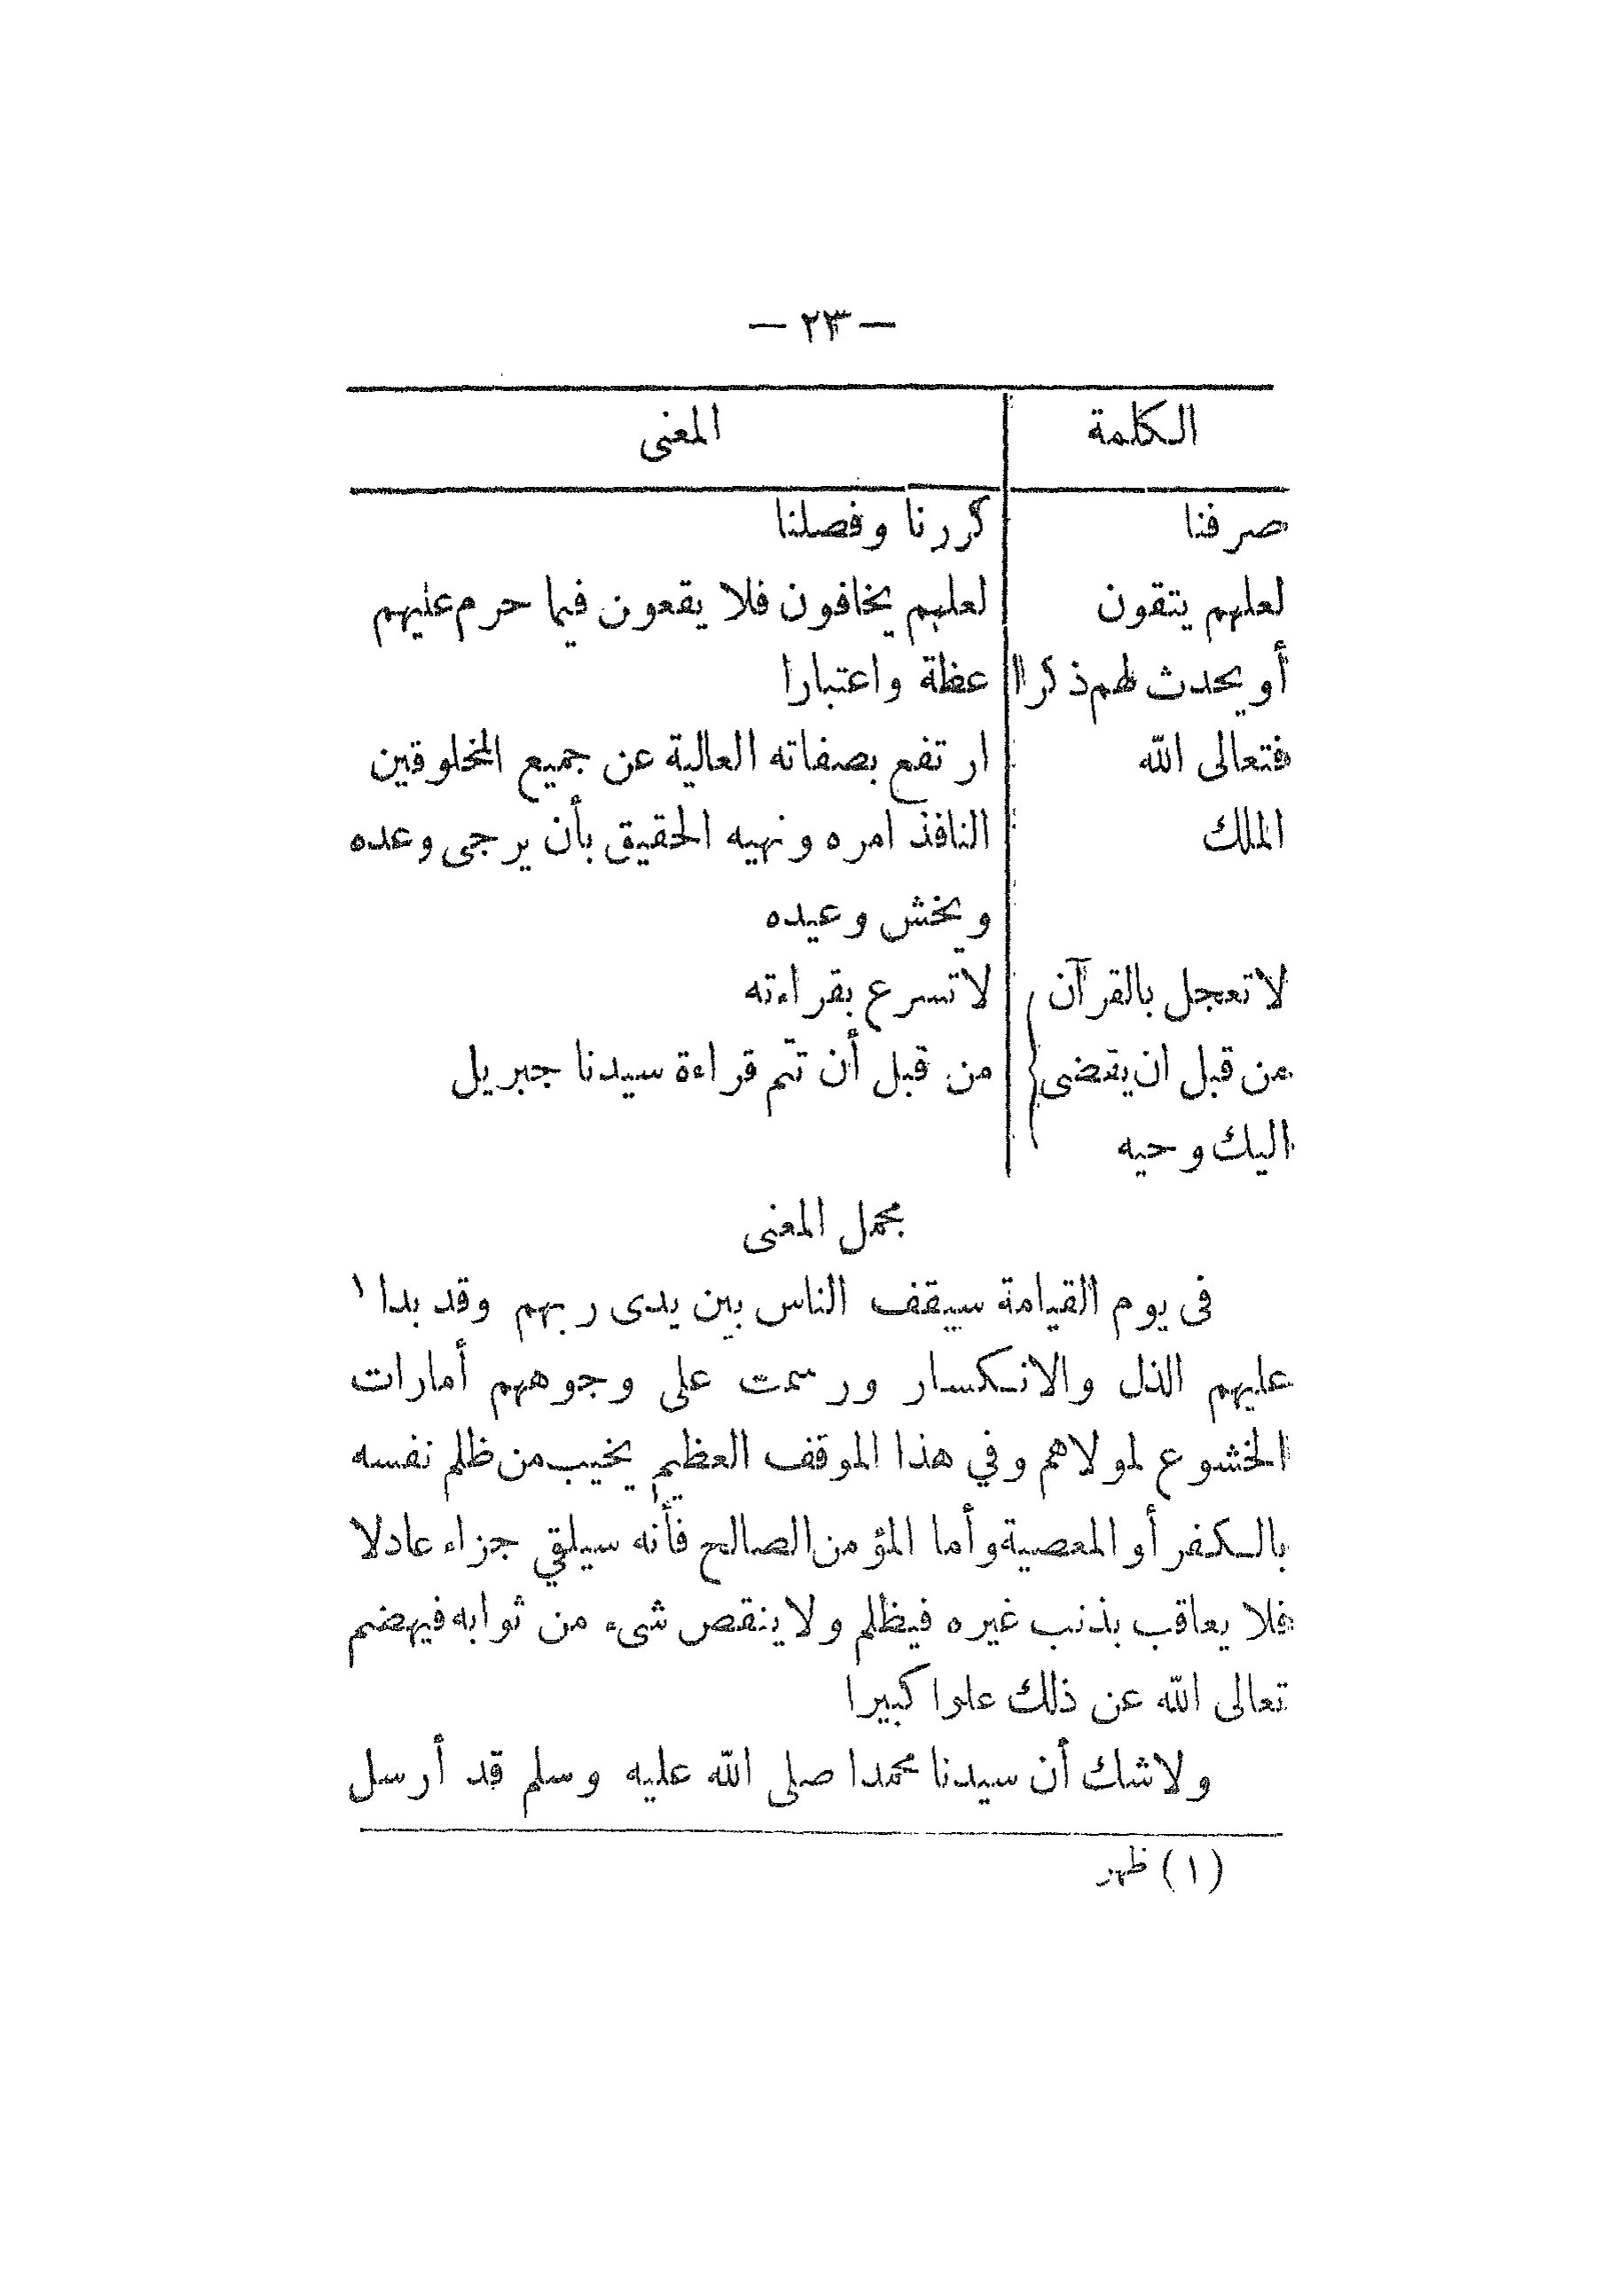 — ٢٣ —
الكلمة المعنى
صرفنا كررنا وفصلنا
لعلهم يتقون لعلهم يخافون فلا يقعون فيما حرم عليهم
أو يحدث لهم ذكرا عظة واعتبارا
فتعالى الله ارتفع بصفاته العالية عن جميع المخلوقين
الملك النافذ امره ونهيه الحقيق بأن يرجى وعده
ويخش وعيده
لا تعجل بالقرآن لا تسرع بقراءته
من قبل ان يقضى من قبل أن تتم قراءة سيدنا جبريل
اليك وحيه
مجمل المعنى
فى يوم القيامة سيقف الناس بين يدى ربهم وقد بدا ١
عليهم الذل والانكسار ورسمت على وجوههم أمارات
الخشوع لمولاهم وفي هذا الموقف العظيم يخيب من ظلم نفسه
بالكفر أو المعصية وأما المؤمن الصالح فأنه سيلقي جزاء عادلا
فلا يعاقب بذنب غيره فيظلم ولا ينقص شىء من ثوابه فيهضم
تعالى الله عن ذلك علوا كبيرا
ولاشك أن سيدنا محمدا صلى الله عليه وسلم قد أرسل
(١) ظهر